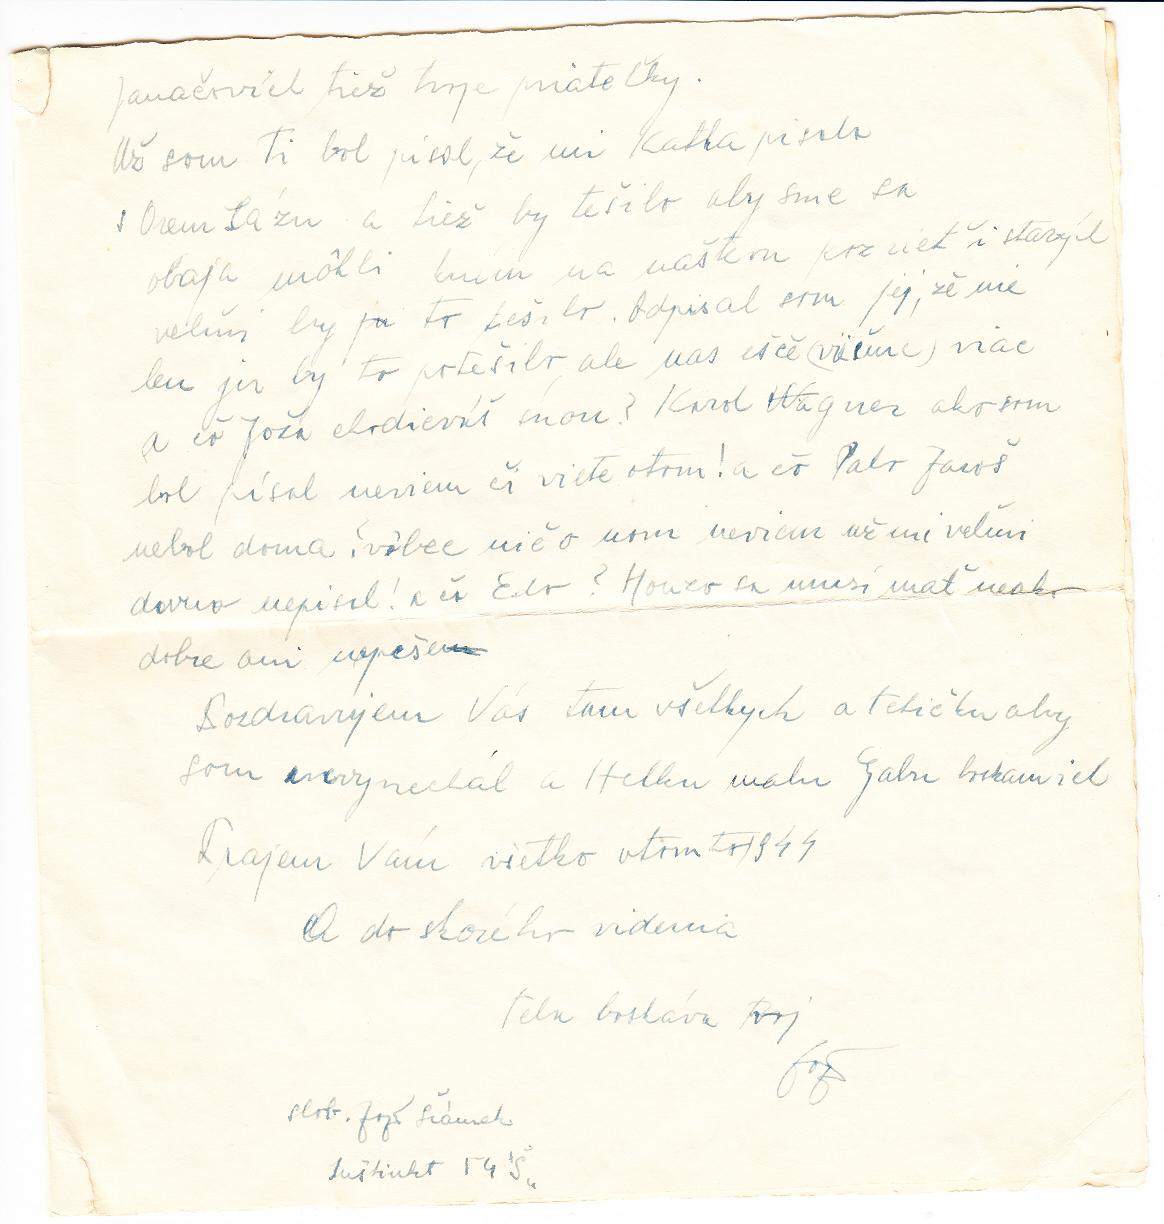 Janačovích tiež tvoje priateľky.
Už som Ti bol písal, že mi Katka písala
s Orem Lázu a tiež by tešilo aby sme sa
obaja môhli knim na naštevu pozrieť i starých
velmi by ju to tešilo. Odpísal som jej, že nie
len ju by to potešilo, ale nas ešče viac
a čo Joža chodievaš snou? Karol Wagner ako som
bol písal neviem či viete otom! a čo Palo Jaroš
nebol doma? vôbec nič o nom neviem už mi velmi
davno nepísal! a čo Edo? Honzo sa musí mať neako
dobre ani nepíše
Pozdravujem Vás tam všetkych a tetičku aby
som nevynechál a Helku malu Gabu boskam ich
Prajem Vám všetko vtomto 1944
A do skorého videnia
Teba boskáva tvoj
Jož
slob. Jož
54 "Š"